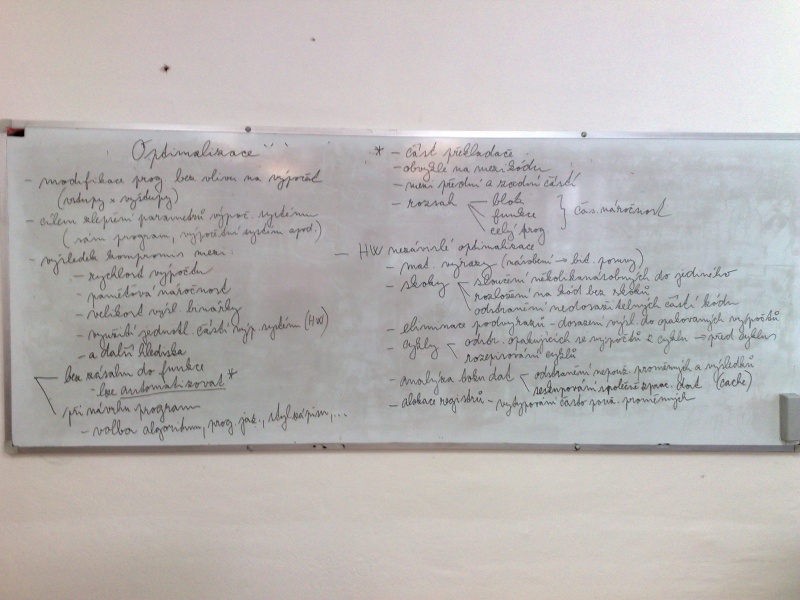 Optimalizace
- modifikace prog. bez vlivu na výpočet
(vstupy × výstupy)
- cílem zlepšení parametrů výpoč. systému
(sám program, výpočetní systém apod.)
- výsledek kompromis mezi:
- rychlost výpočtu
- paměťová náročnost
- velikost výsl. binárky
- využití jednotl. částí výp. systém (HW)
- a další hlediska
bez zásahu do funkce
- lze automatizovat *
při návrhu programu
- volba algoritmu, prog. jaz., styl zápisu, ...
* - část překladače
- obvykle na mezikódu
- mezi přední a zadní částí
- rozsah
blok
funkce
celý prog
} čas. náročnost
- HW nezávislé optimalizace
- mat. výrazy (násobení → bit. posuvy)
- skoky
sloučení několikanásobných do jediného
rozložení na kód bez skoků
odstranění nedosažitelných částí kódu
- eliminace podvýrazů - dosazení výsl. do opakovaných výpočtů
- cykly
odstr. opakujících se výpočtů z cyklu → před cyklus
rozepisování cyklů
- analýza toku dat
odstranění nepouž. proměnných a výsledků
seskupování společně zprac. dat (cache)
- alokace registrů - vytypování často použ. proměnných